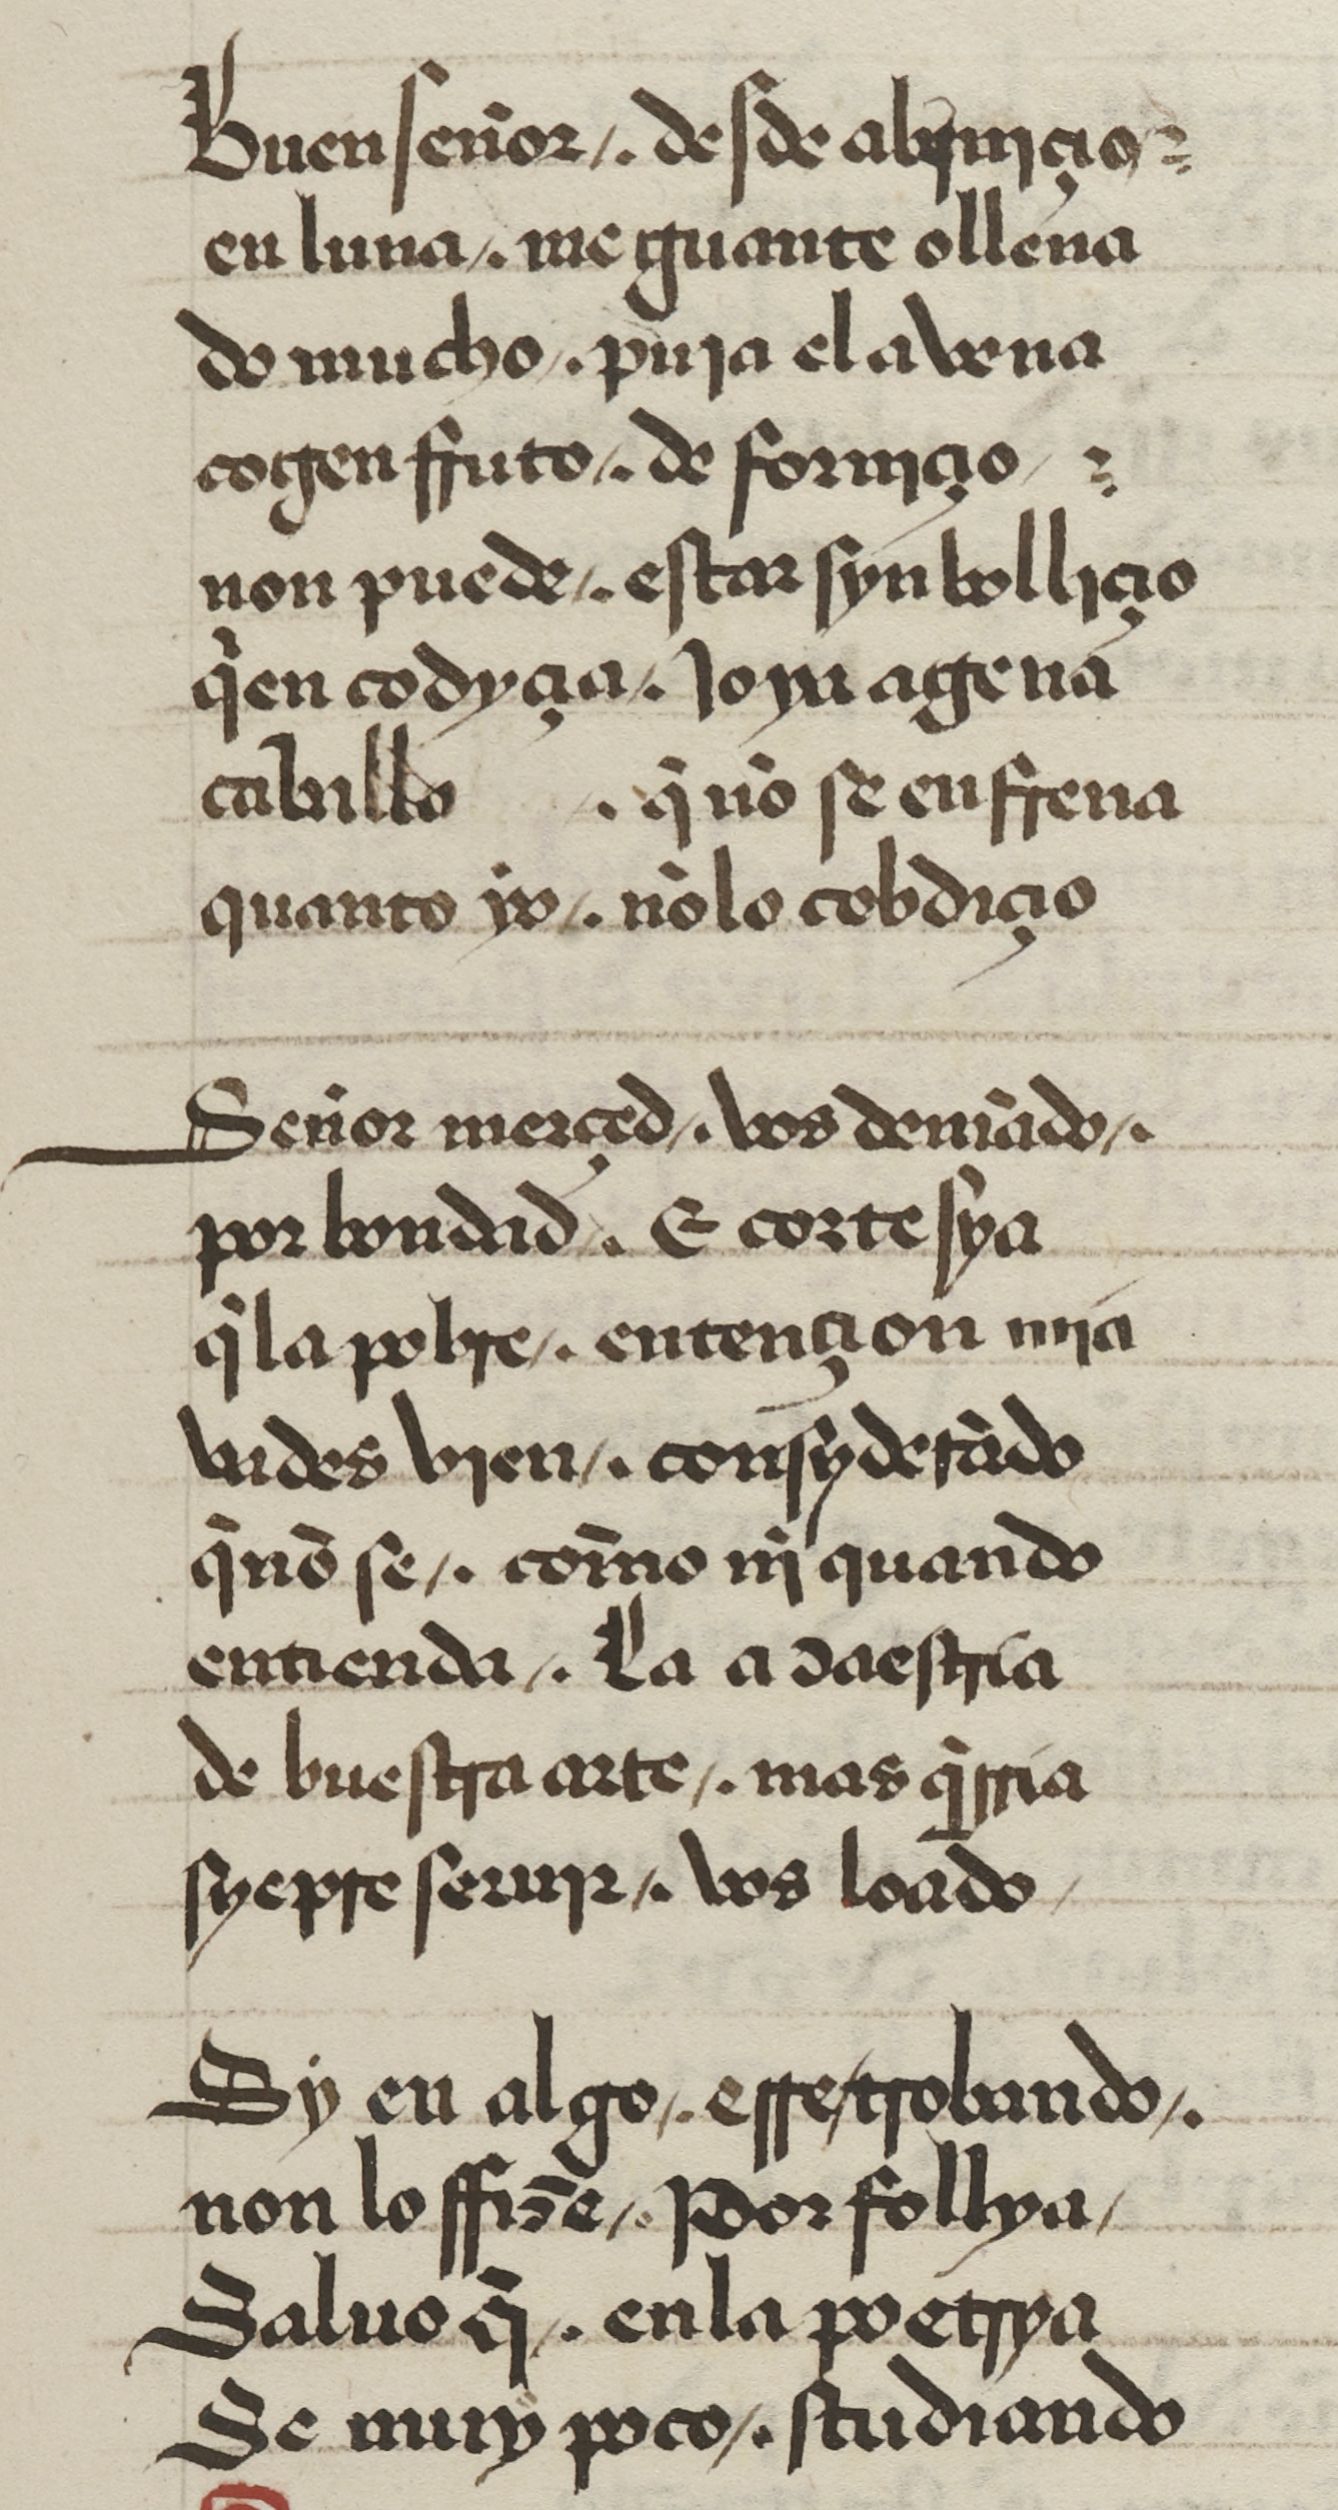 Buen señor /. desde abyniçio
en luna /. me guante ollena
do mucho /. puja el avena
cogen ffruto /. de forniçio
non puede /. estar syn bolliçio
q̃en codyçia /. lo mj agena
cabillo . q̃ nõ se enffrena
quanto yo /. nõ lo cobdiçio
Señor merçed /. vos demãdo /.
por bondad /. E cortesya
q̃ la pobre /. entençion mja
vades bien /. consyderãdo
q̃ nõ se /. com̃o nj̃ quando
entienda /. La a daestria
de buestra arte /. mas q̃rria
syepre seruir /. vos loãdo /
Sy en algo /. erre / trobando /.
non lo ffize /. Por follya /
Saluo q̃ /. en la poetrya
Se muy poco /. studiando